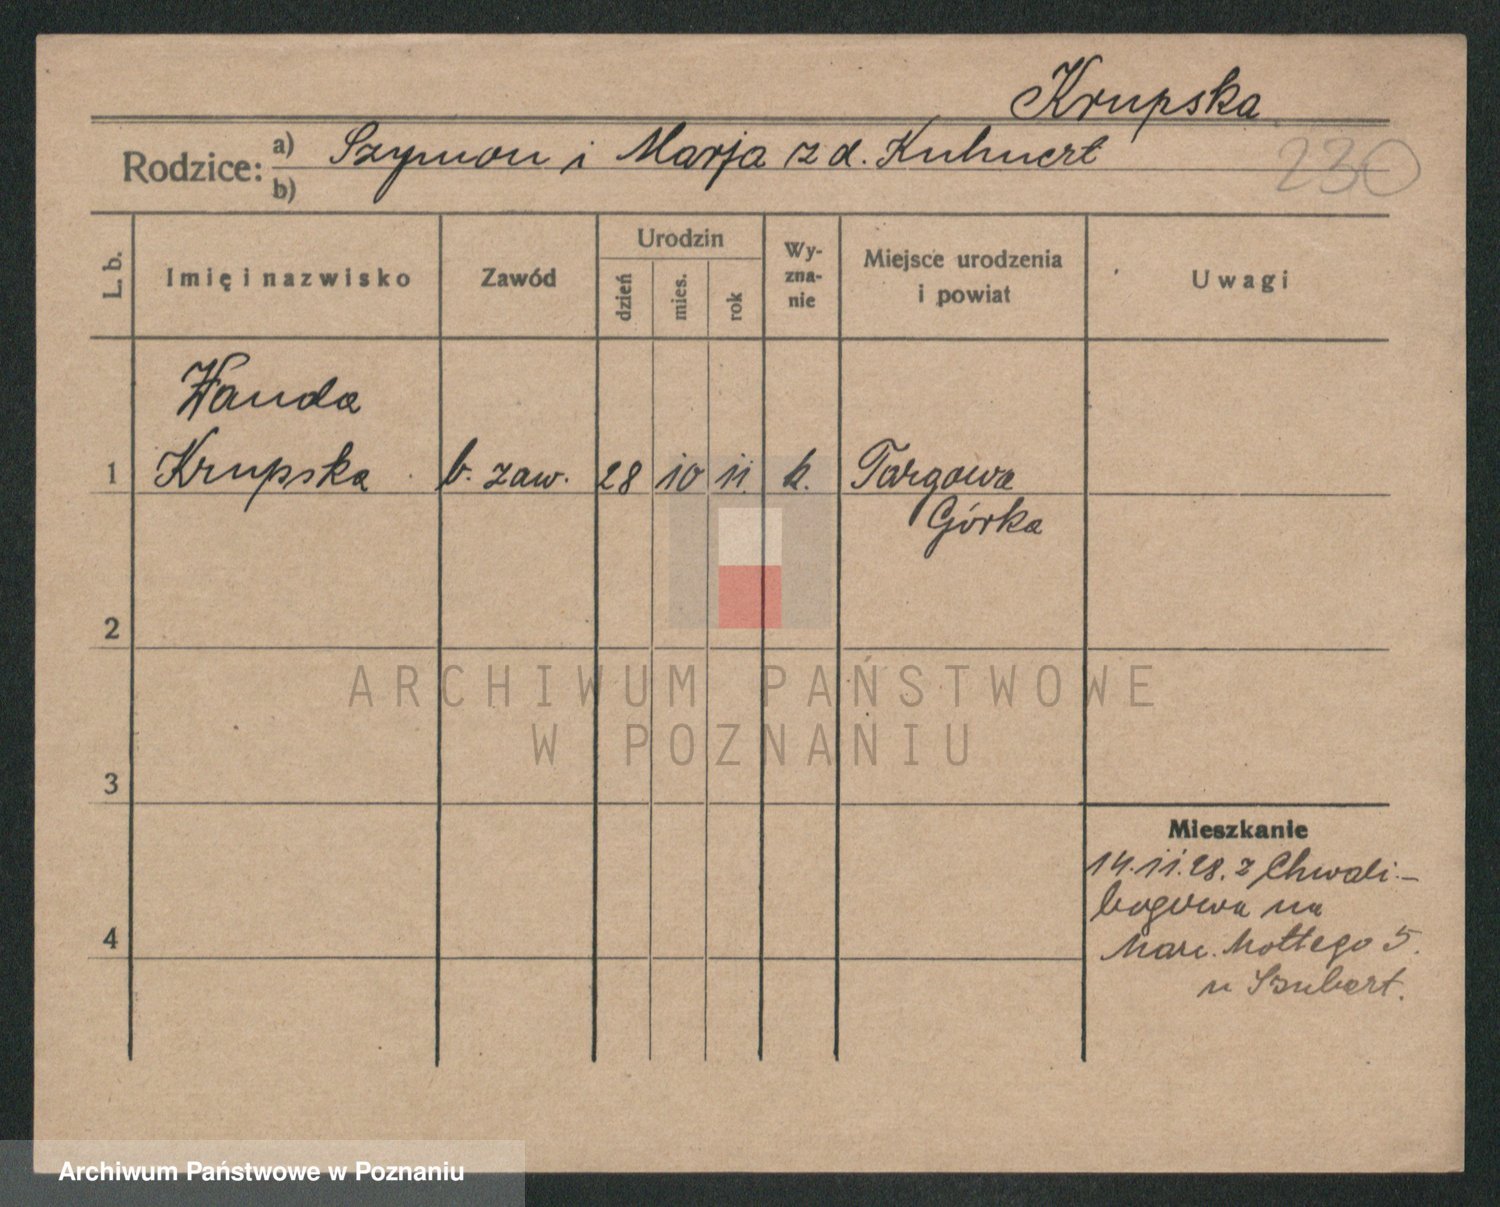 Krupska
Rodzice: a) Szymon i Marja z d. Kuhnert
b)
230
L. b.
Imię i nazwisko
Zawód
Urodzin
dzień
mies.
rok
Wy-
zna-
nie
Miejsce urodzenia
i powiat
Uwagi
Wanda
1 Krupska b. zaw. 28 10 11. k. Targowa
Górka
2
ARCHIWUM PAŃSTWOWE
W POZNANIU
3
Mieszkanie
14.11.28. z Chwali-
bogowa na
4
Marc. Mottego 5.
u Szubert.
Archiwum Państwowe w Poznaniu